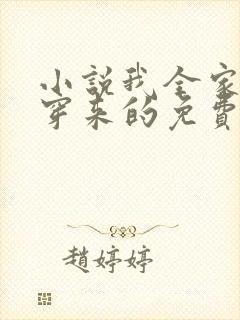 小說我全家
穿來的免費
趙婷婷